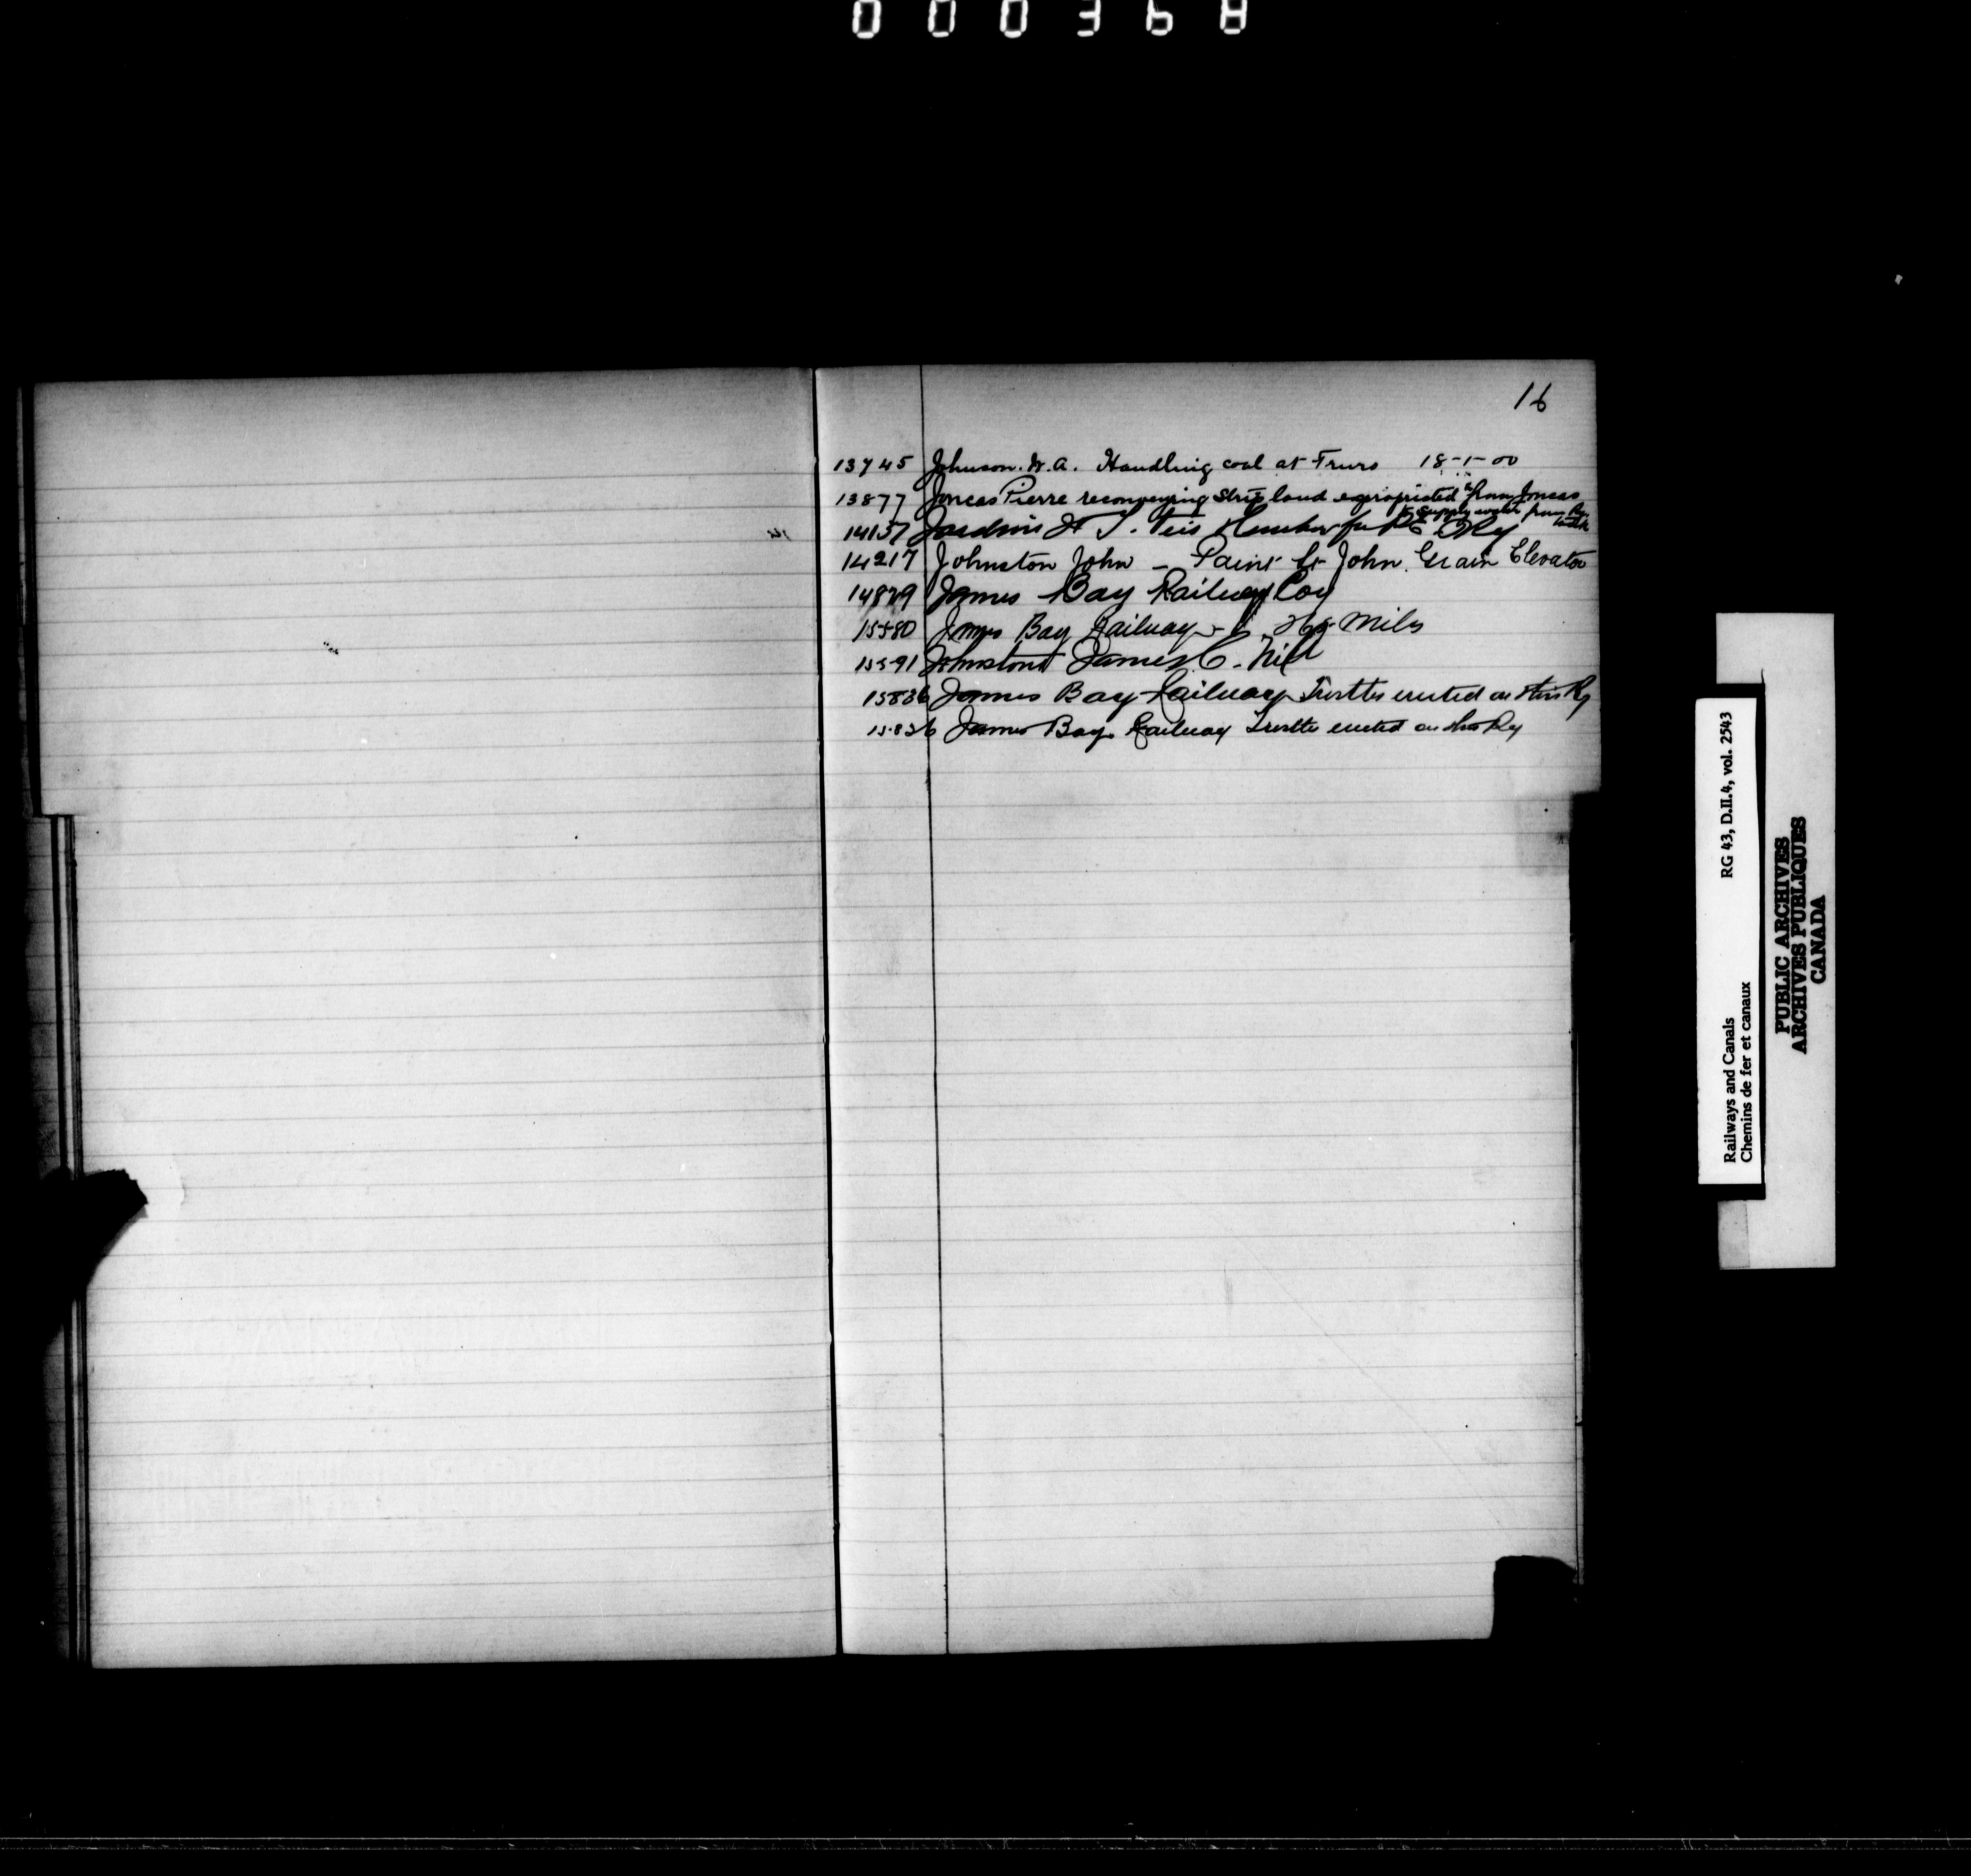 000368
16
13745 Johnson. W. A. Handling coal at Truro 18-1-00
13877 Joncas Pierre reconveying strip land expropriated from Joncas
to supply water from Ry. tank
14137 Jardine
14217 Johnston John - Paint St John Grain Elevator
14879 James Bay Railway Coy
15580 James Bay Railway Miles
15591 Johnston James C.
15836 James Bay Railway Trestles erected on this Ry
15836 James Bay Railway Trestles erected on this Ry
Railways and Canals RG 43, D.II.4, vol. 2543
Chemins de fer et canaux
PUBLIC ARCHIVES
ARCHIVES PUBLIQUES
CANADA